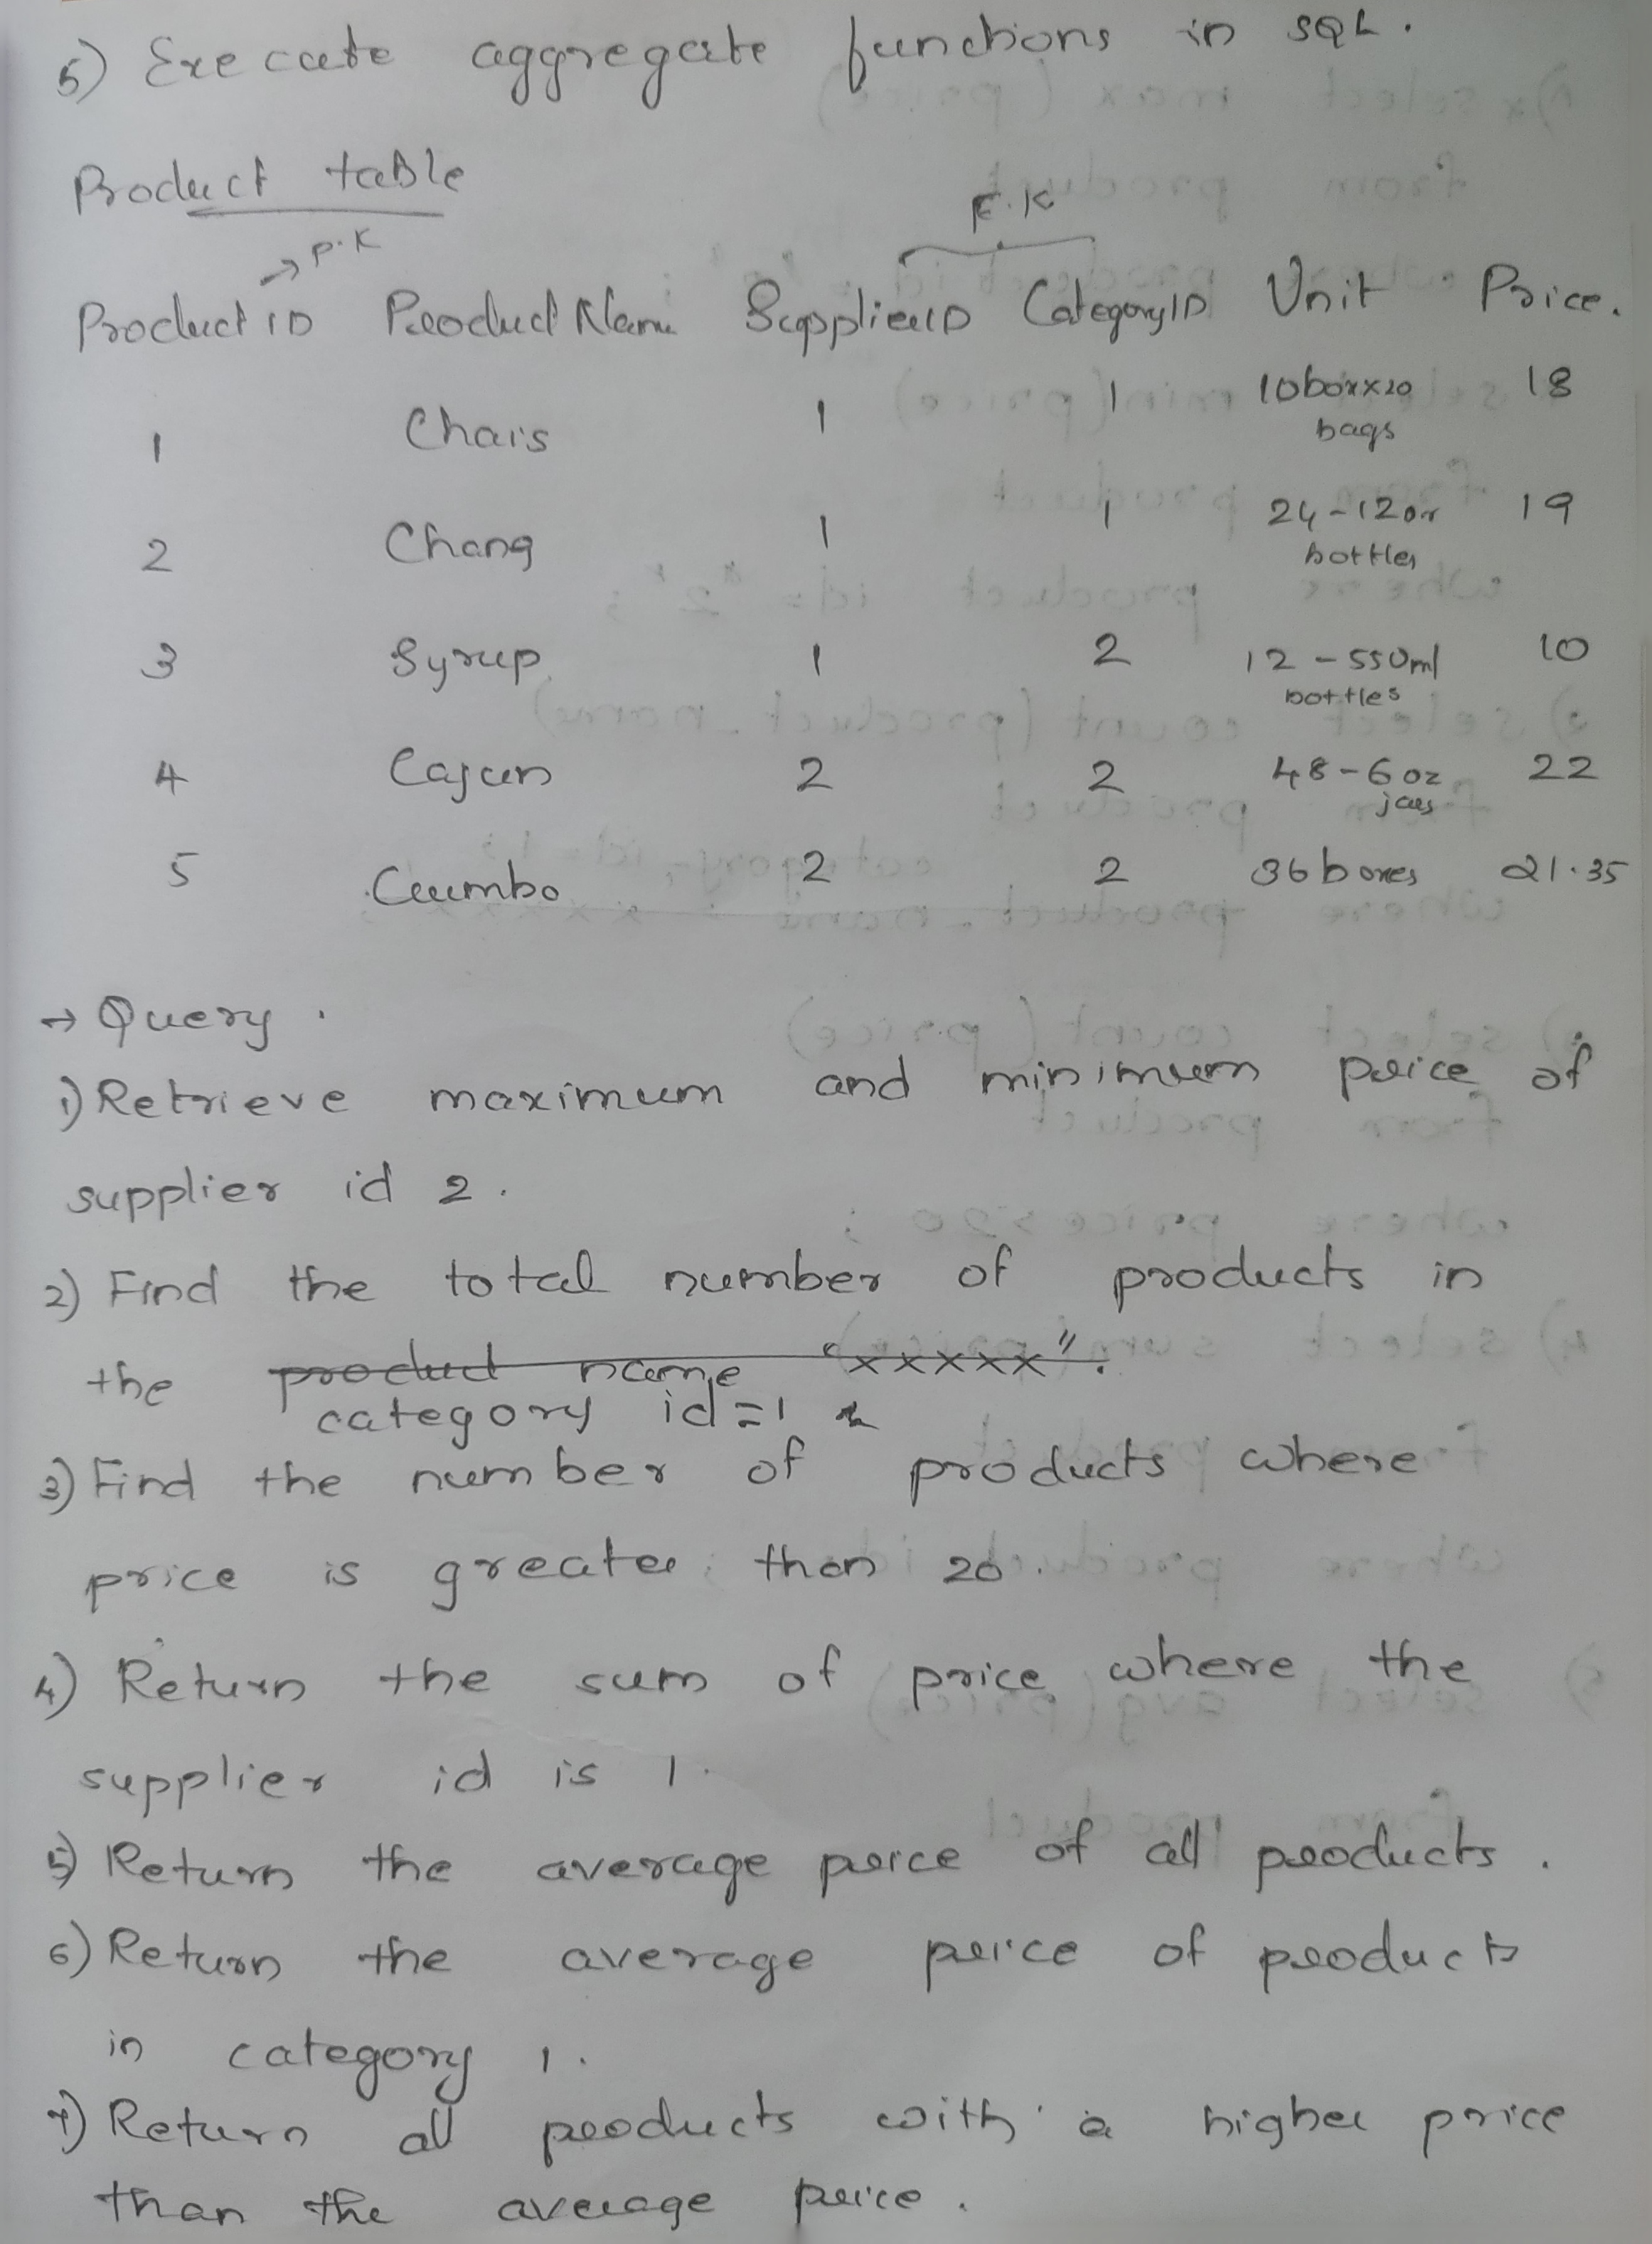 5) Execute aggregate functions in SQL.
Product table
F.K
→ P.K
Product ID Product Name SupplierID CategoryID Unit Price.
1 Chais 1 1 10boxx20 bags 18
2 Chang 1 1 24-12oz bottles 19
3 Syrup 1 2 12-550ml bottles 10
4 Cajun 2 2 48-6oz jars 22
5 2 2 36boxes 21.35
→ Query.
1) Retrieve maximum and minimum price of
supplier id 2.
2) Find the total number of products in
the product name "xxxxx".
category id=1
3) Find the number of products where
price is greater than 20.
4) Return the sum of price where the
supplier id is 1.
5) Return the average price of all products.
6) Return the average price of products
in category 1.
7) Return all products with a higher price
than the average price.